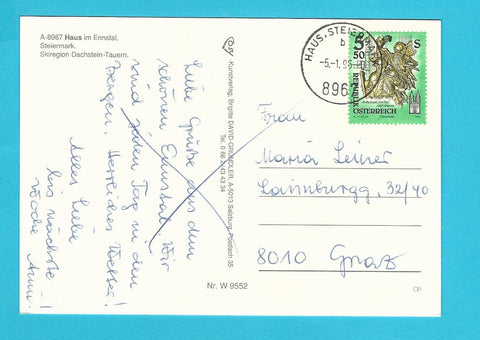 A-8967 Haus im Ennstal,
Steiermark.
Skiregion Dachstein-Tauern.
Liebe Grüße aus dem
schönen Ennstal. Wir
sind jeden Tag in den
Bergen. Herrliches Wetter!
Alles Liebe
bis nächste
Woche
Kunstverlag, Brigitte DAVID-GRÜNDLER, A-5013 Salzburg, Postfach 35
Tel. 0 66 2/43 43 34
Nr. W 9552
HAUS, STEIERMARK
b
-5.-1.95
896
5
50
S
REPUBLIK
ÖSTERREICH
Frau
Maria Leiner
32/40
8010 Graz
CP